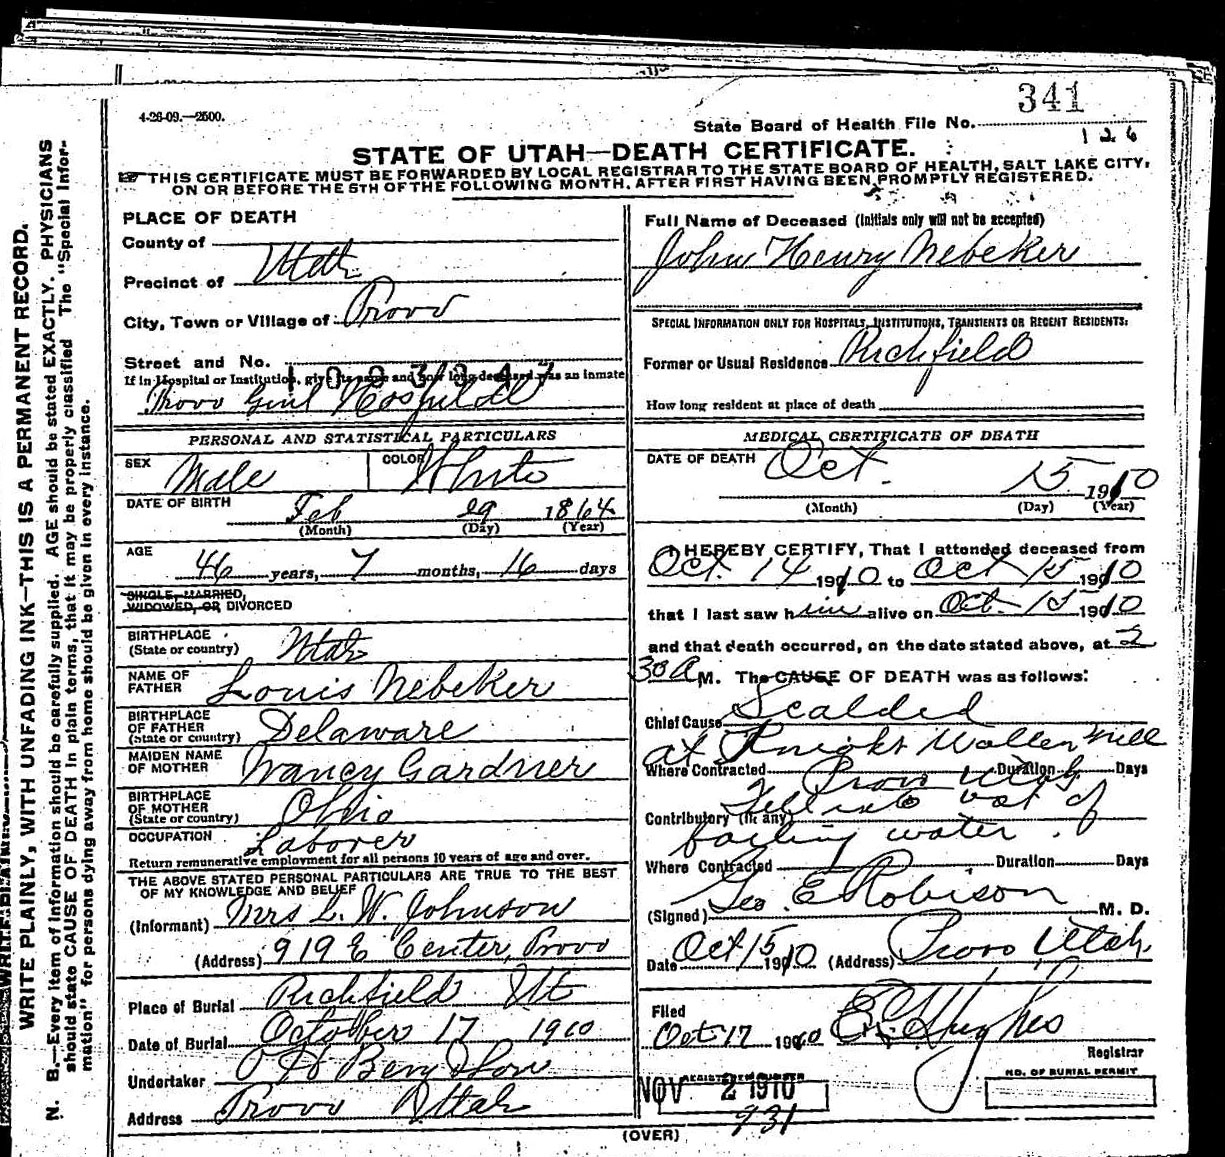 341
4-26-09.—2500.
State Board of Health File No.
126
STATE OF UTAH—DEATH CERTIFICATE.
THIS CERTIFICATE MUST BE FORWARDED BY LOCAL REGISTRAR TO THE STATE BOARD OF HEALTH, SALT LAKE CITY,
ON OR BEFORE THE 5TH OF THE FOLLOWING MONTH, AFTER FIRST HAVING BEEN PROMPTLY REGISTERED.
WRITE PLAINLY, WITH UNFADING INK—THIS IS A PERMANENT RECORD.
N. B.—Every item of information should be carefully supplied. AGE should be stated EXACTLY. PHYSICIANS
should state CAUSE OF DEATH in plain terms, that it may be properly classified. The "Special Infor-
mation" for persons dying away from home should be given in every instance.
PLACE OF DEATH
County of
Precinct of Utah
City, Town or Village of Provo
Street and No.
If in Hospital or Institution, give its name and how long deceased was an inmate
Provo Genl Hospital
PERSONAL AND STATISTICAL PARTICULARS
SEX Male COLOR White
DATE OF BIRTH Feb 29 1864
(Month) (Day) (Year)
AGE 46 years, 7 months, 16 days
SINGLE, MARRIED,
WIDOWED, OR DIVORCED
BIRTHPLACE
(State or country) Utah
NAME OF
FATHER Louis Nebeker
BIRTHPLACE
OF FATHER
(State or country) Delaware
MAIDEN NAME
OF MOTHER Nancy Gardner
BIRTHPLACE
OF MOTHER
(State or country) Ohio
OCCUPATION Laborer
Return remunerative employment for all persons 10 years of age and over.
THE ABOVE STATED PERSONAL PARTICULARS ARE TRUE TO THE BEST
OF MY KNOWLEDGE AND BELIEF
(Informant) Mrs L. W. Johnson
(Address) 919 E Center, Provo
Place of Burial Richfield Ut
Date of Burial October 17 1910
Undertaker
Address Provo Utah
Full Name of Deceased (Initials only will not be accepted)
John Henry Nebeker
SPECIAL INFORMATION ONLY FOR HOSPITALS, INSTITUTIONS, TRANSIENTS OR RECENT RESIDENTS:
Former or Usual Residence Richfield
How long resident at place of death
MEDICAL CERTIFICATE OF DEATH
DATE OF DEATH Oct. 15 1910
(Month) (Day) (Year)
I HEREBY CERTIFY, That I attended deceased from
Oct. 14 1910 to Oct 15 1910
that I last saw him alive on Oct. 15 1910
and that death occurred, on the date stated above, at 2
30 A M. The CAUSE OF DEATH was as follows:
Chief Cause Scalded
at Knight Wollen Mill
Where Contracted Provo Utah Duration Days
Contributory (if any) Fell into vat of
boiling water.
Where Contracted Duration Days
(Signed) Geo. E Robison M. D.
Date Oct 15 1910 (Address) Provo Utah
Filed
Oct 17 1910 Hughes
Registrar
REGISTERED NUMBER
NOV 2 1910
931
NO. OF BURIAL PERMIT
(OVER)